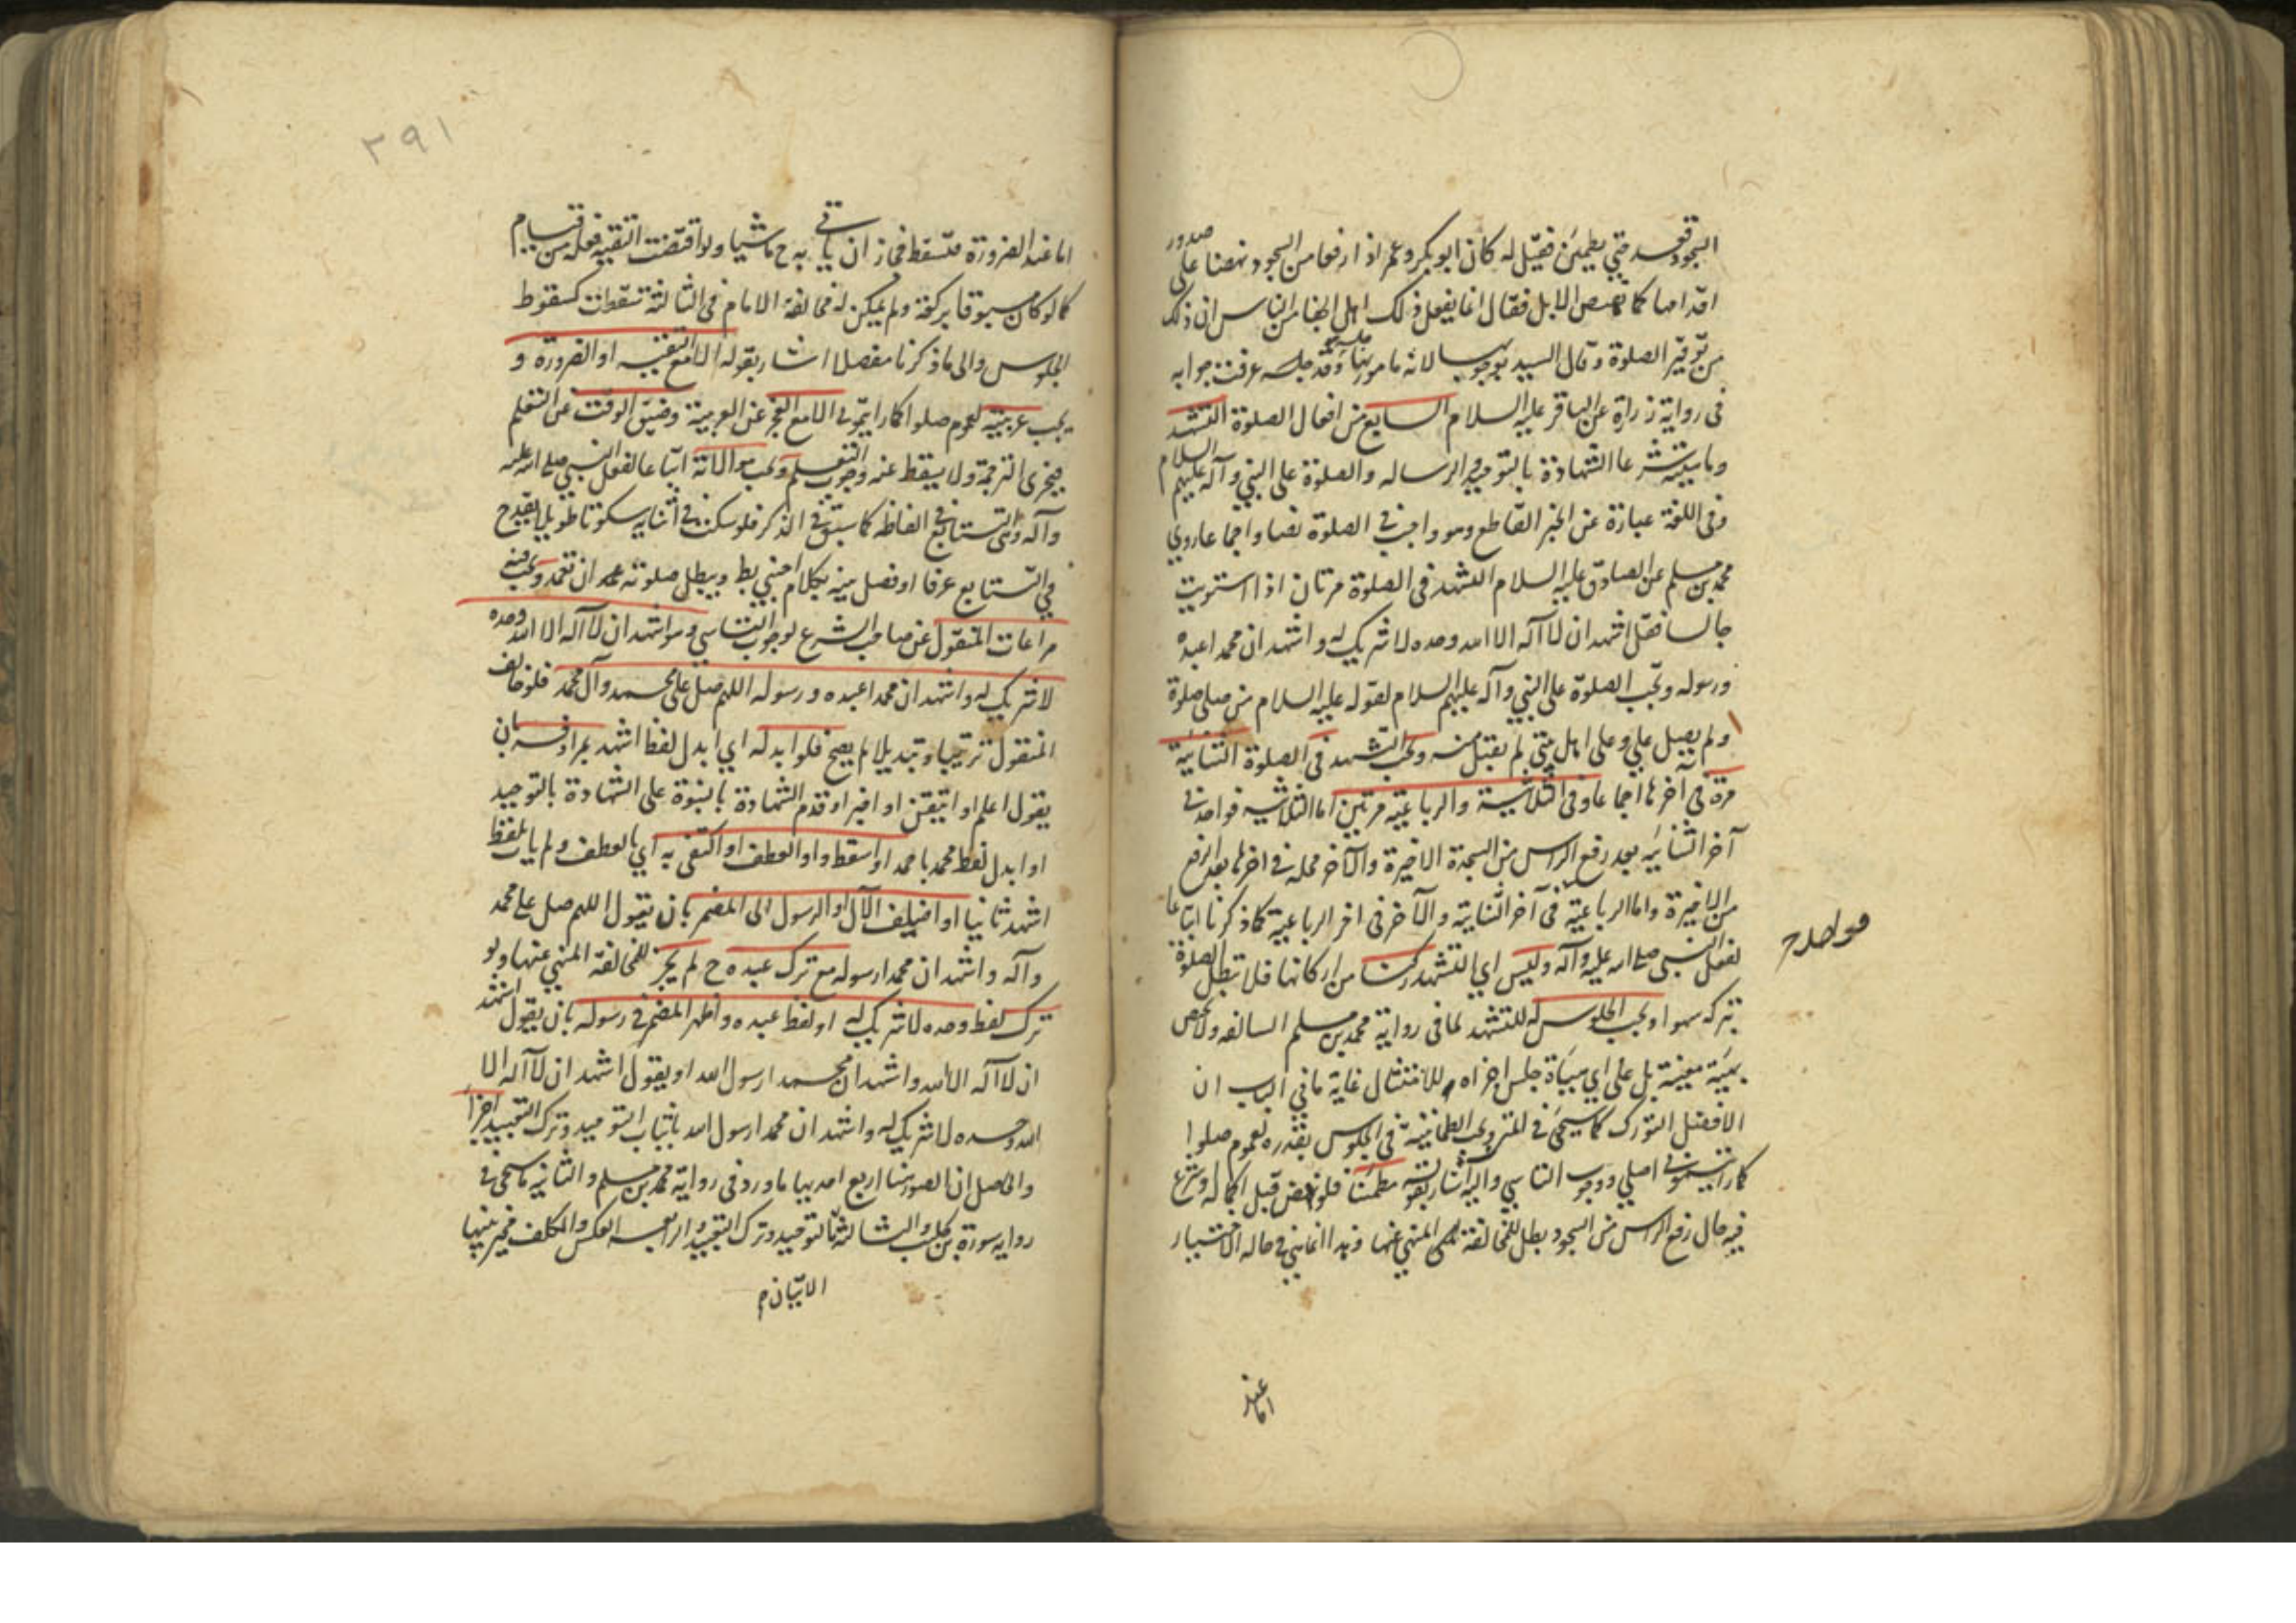 السجود قعد حتى يطمئن فقيل له كان ابو بكر وعمر اذا رفعا من السجود نهضا على صدور
اقدامهما كما تنهض الابل فقال انما يفعل ذلك اهل الجفا من الناس ان ذلك
من توقير الصلوة وقال السيد بوجوبها لانه مامور بها وقد عرفت جوابه
فى رواية زرارة عن الباقر عليه السلام السابع من افعال الصلوة التشهد
وما يتشرعا الشهادة بالتوحيد والرساله والصلوة على النبي وآله عليهم السلام
وفى اللغة عبارة عن الخبر القاطع وهو واجب في الصلوة نصا واجماعا روي
محمد بن مسلم عن الصادق عليه السلام التشهد فى الصلوة مرتان اذا استويت
جالسا فقل اشهد ان لا آله الا الله وحده لا شريك له واشهد ان محمدا عبده
ورسوله وتجب الصلوة على النبي وآله عليهم السلام لقوله عليه السلام من صلى صلوة
ولم يصل علي وعلى اهل بيتى لم يقبل منه ويجب التشهد فى الصلوة الثنائية
مرة في آخرها اجماعا وفى الثلاثية والرباعية مرتين اما الثلاثية فواحد فى
آخر الثنائية بعد رفع الراس من السجدة الاخيرة والآخر محله فى اخرها بعد الرفع
من الاخيرة واما الرباعية فى آخر الثنائية والآخر فى اخر الرباعية كما ذكرنا اتباعا
لفعل النبي صلى الله عليه وآله وليس اي التشهد ركنا من اركانها فلا تبطل الصلوة
بتركه سهوا ويجب الجلوس له للتشهد لما فى رواية محمد بن مسلم السالفه ولا يخص
بهيئة معينة بل على اي هيئاة جلس اجزاه للامتثال غاية ما في الباب ان
الافضل التورك كما سيجئ فى المتن ويجب الطمانينة فى الجلوس بقدره لعموم صلوا
كما رايتموني اصلي ووجوب التاسي واليه اشار بقوله مطمئنا فلو نهض قبل اكماله او شرع
فيه حال رفع الراس من السجود بطل للمخالفة المنهي عنها وهذا انما يتي في حاله الاختيار
اما عند
اما عند الضرورة فتسقط فجاز ان ياتي به ح ماشيا ولو اقتضت التقية فعله من قيام
كما لو كان مسبوقا بركعة ولم يمكن له مخالفة الامام فى الثالثة تسقطت كسقوط
الجلوس والى ما ذكرنا مفصلا اشار بقوله الا مع التقية او الضرورة و
يجب عربيته لعموم صلوا كما رايتموني الا مع العجز عن العربية وضيق الوقت عن التعلم
فيجزى الترجمة ولا يسقط عنه وجوب التعلم ويجب موالاته اتباعا لفعل النبي صلى الله عليه
وآله التتابع فى الفاظه كما سبق في الذكر فلو سكت في اثنايه سكوتا طويلا يقدح
في التتابع عرفا او فصل بينه بكلام اجنبي بطل ويبطل صلوته ان تعمد ويجب فيه
مراعات المنقول عن صاحب الشرع لوجوب التاسي وهو اشهد ان لا آله الا الله وحده
لا شريك له واشهد ان محمدا عبده ورسوله اللهم صل على محمد وآل محمد فلو خالف
المنقول ترتيبا وتبديلا لم يصح فلو ابدله اي ابدل لفظ اشهد بمرادفه بان
يقول اعلم او اتيقن او اخبر او قدم الشهادة بالنبوة على الشهادة بالتوحيد
او ابدل لفظ محمد باحمد او اسقط واو العطف او اكتفى به اي بالعطف ولم يات بلفظ
اشهد ثانيا او اضيف الآل او الرسول الى المضمر بان يقول اللهم صل على محمد
وآله واشهد ان محمدا رسوله مع ترك عبده ح لم يجز للمخالفة المنهي عنها ولو
ترك لفظ وحده لا شريك له او لفظ عبده واظهر المضمر في رسوله بان يقول اشهد
ان لا آله الا الله واشهد ان محمدا رسول الله او يقول اشهد ان لا آله الا
الله وحده لا شريك له واشهد ان محمدا رسول الله باثبات التوحيد وترك التعبيد اجزأ
والحاصل ان الصور هنا اربع احديها ما ورد فى رواية محمد بن مسلم والثانية ما سيجئ في
رواية سورة بن كليب والثالثة التوحيد وترك التعبيد والرابعة العكس والمكلف مخير بينها
الاتيان
٢٩١